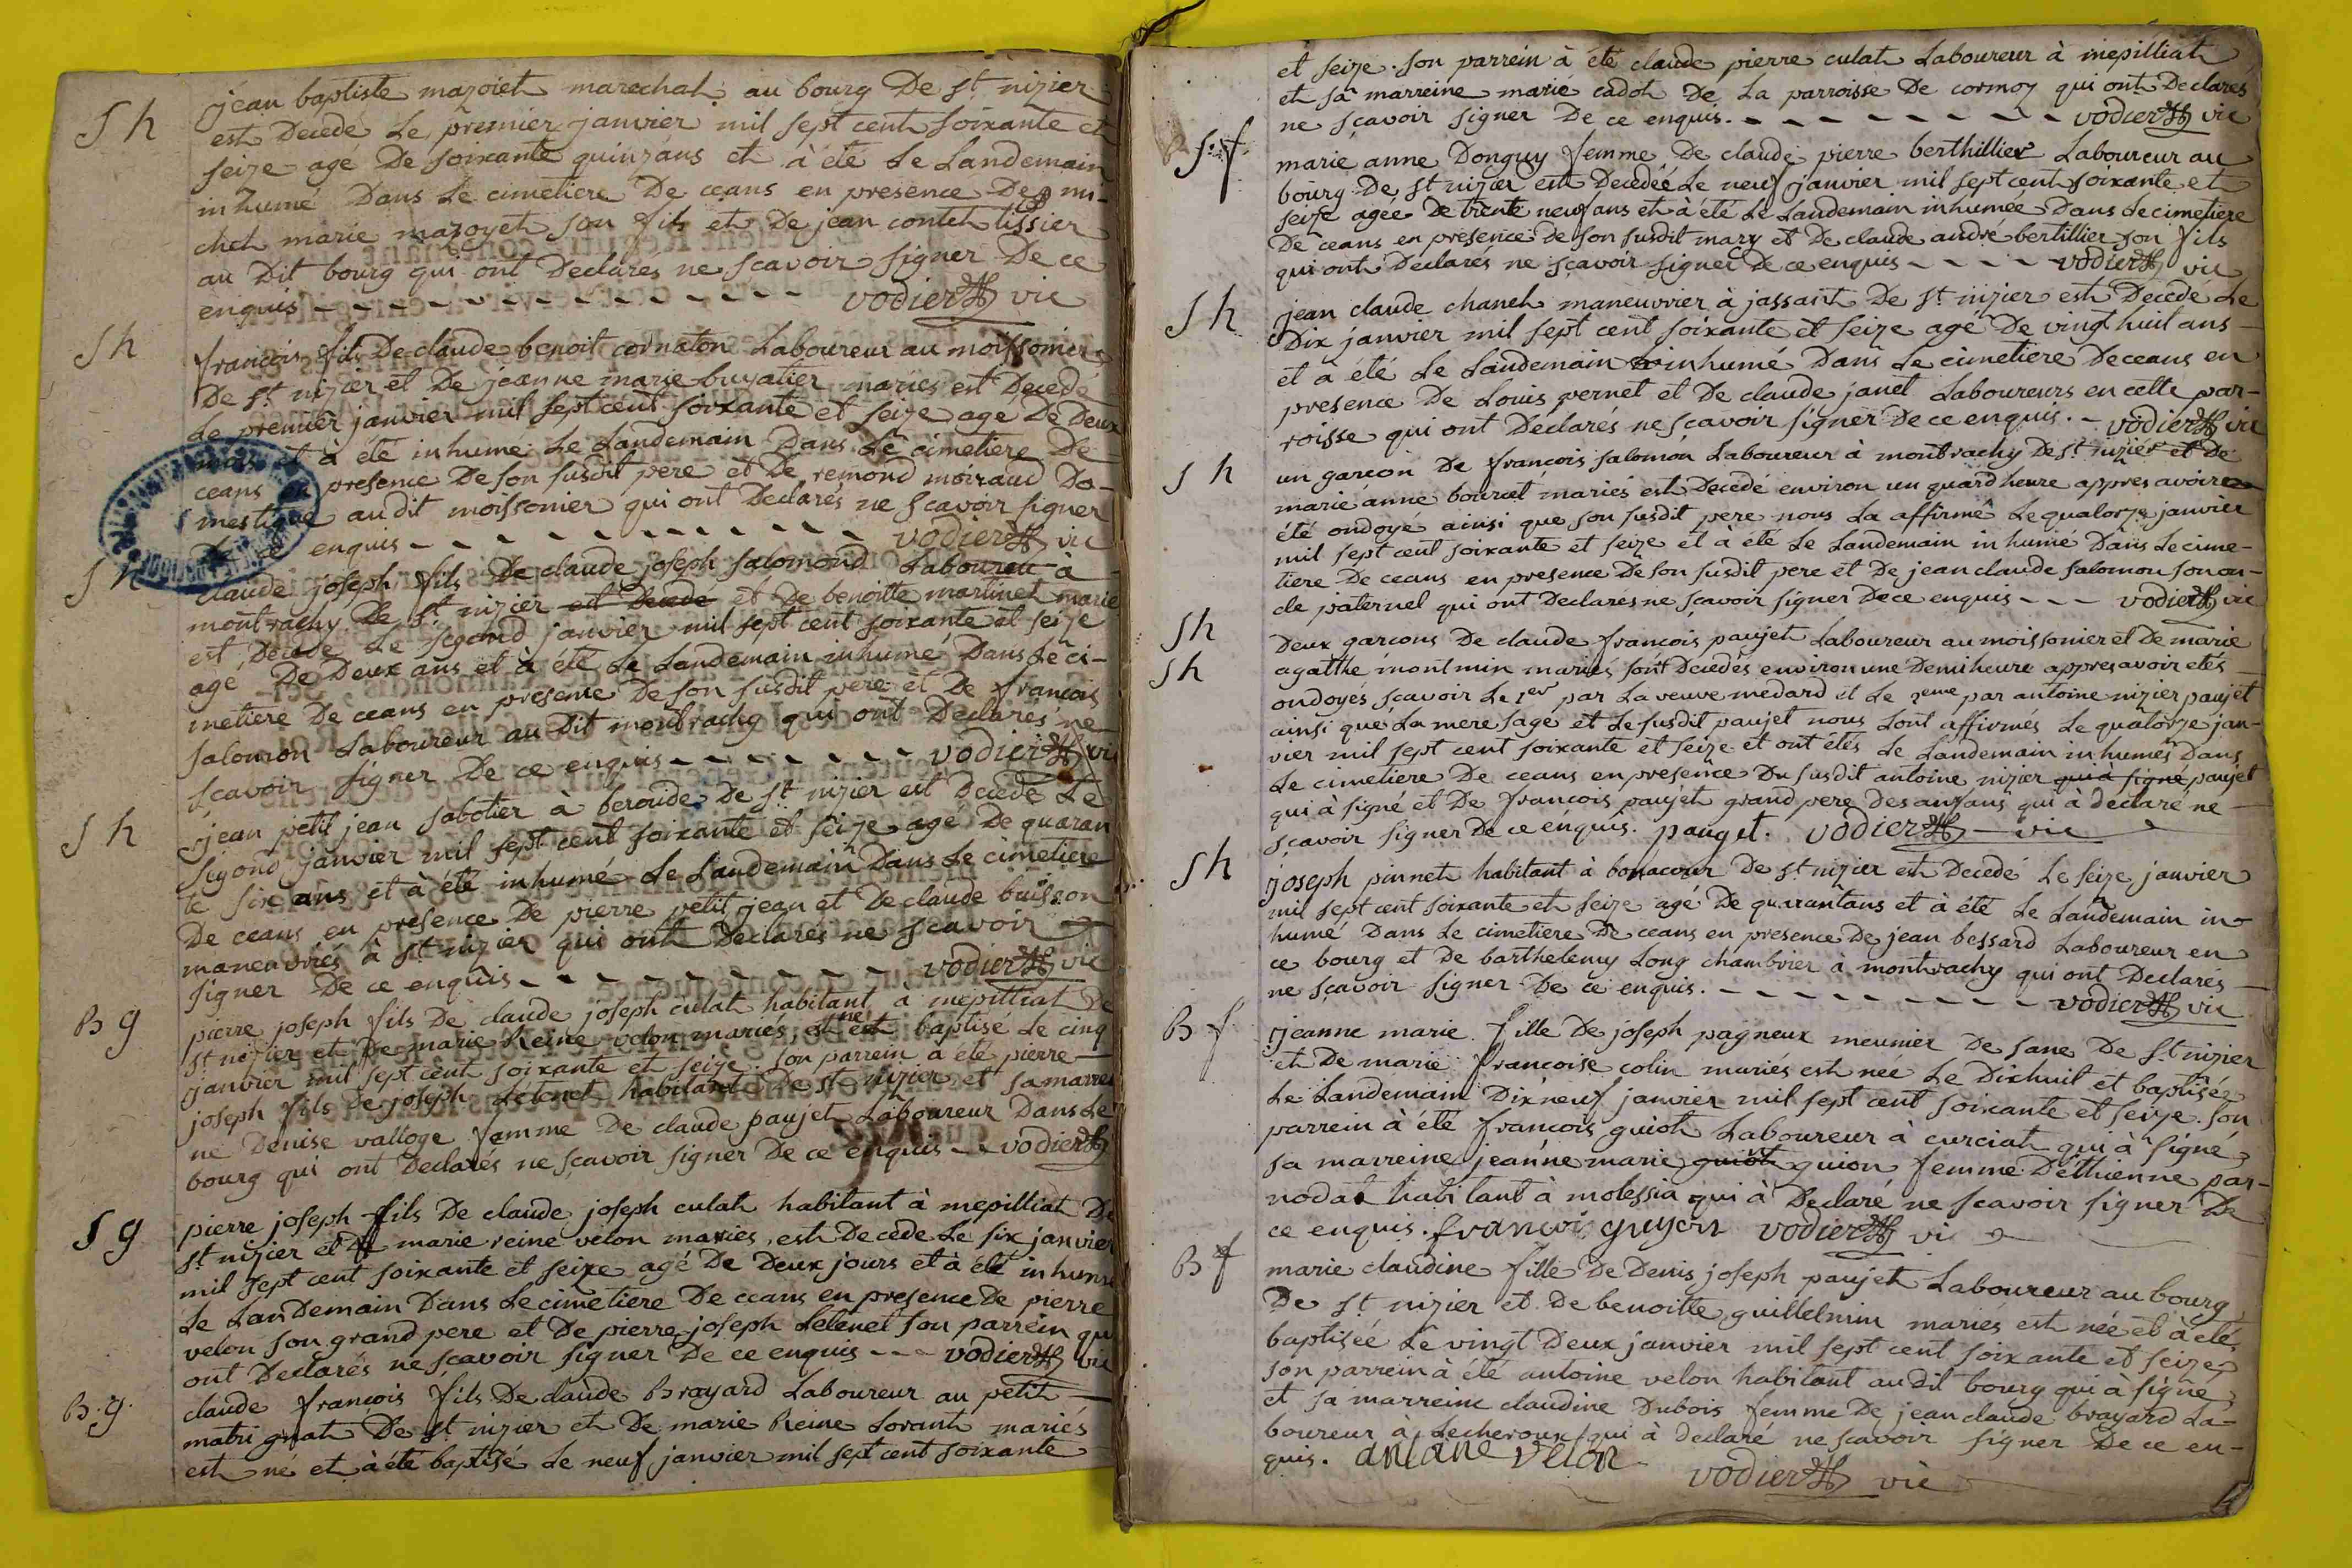 S h
jean baptiste mazoiet marechal au bourg De St nizier
est Decedé Le premier janvier mil sept cent soixante et
seize agé De soixante quinzans et à été Le Landemain
inhumé Dans Le cimetiere De ceans en presence De mi-
chel marie mazoyet son fils et De jean contet tissier
au Dit bourg qui ont Declarés ne scavoir signer De ce
enquis - - - - - - - - - - vodier vic
S h
francois fils De claude benoit cornaton Laboureur au moissonier
De St nizier et De jeanne marie buyatier mariés est Decedé
Le premier janvier mil sept cent soixante et seize agé De Deux
mois et à été inhumé Le Landemain Dans Le cimetiere De
ceans en presence De son susdit pere et De remond moiraud Do-
mestique audit moissonier qui ont Declarés ne scavoir signer
De ce enquis - - - - - - - - - vodier vic
S h
claude joseph fils De claude joseph salomond Laboureur à
montrachy De St nizier est Decedé et De benoitte martinet marié
est Decedé Le segond janvier mil sept cent soixante et seize
agé De Deux ans et à été Le Landemain inhumé Dans Le ci-
metiere De ceans en presence De son susdit pere et De francois
salomon Laboureur au Dit montrachy qui ont Declarés ne
scavoir signer De ce enquis - - - - - - vodier vic
S h
jean petit jean sabotier à beroude De St nizier est Decedé Le
sigond janvier mil sept cent soixante et seize agé De quaran
te six ans et à été inhumé Le Landemain Dans Le cimetiere
De ceans en presence De pierre petit jean et De claude buisson
maneuvriés à St nizier qui ont Declarés ne scavoir
signer De ce enquis - - - - - - - - - vodier vic
B g
pierre joseph fils De claude joseph culat habitant a mepilliat De
St nizier et De marie Reine velon mariés, est né est baptisé Le cinq
janvier mil sept cent soixante et seize. son parrein à été pierre
joseph fils De joseph Letenet habitant De St nizier et sa marrei
ne Denise valloge femme De claude paujet Laboureur Dans Le
bourg qui ont Declarés ne scavoir signer De ce enquis - - vodier
S g
pierre joseph fils De claude joseph culat habitant à mepilliat De
St nizier et De marie reine velon mariés, est Decedé Le six janvier
mil sept cent soixante et seize agé De Deux jours et à été inhumé
Le LanDemain Dans Le cimetiere De ceans en presence De pierre
velon son grand pere et De pierre joseph Letenet son parrein qui
ont Declarés ne scavoir signer De ce enquis - - - vodier vic
B. g.
claude francois fils De claude Brayard Laboureur au petit
matrignat De St nizier et De marie Reine Lorant mariés
est né et à été baptisé Le neuf janvier mil sept cent soixante
et seize. son parrein à été claude pierre culat Laboureur à mepilliat
et sa marreine marie cadot De La parroisse De cormoz qui ont Declarés
ne scavoir signer De ce enquis. - - - - - - - - - vodier vic
S. f.
marie anne Donguy femme De claude pierre berthillier Laboureur au
bourg De St nizier est Decedéé Le neuf janvier mil sept cent soixante et
seize agée De trente neuf ans et à été Le Landemain inhumée Dans Le cimetiere
De ceans en presence De son susdit mary et De claude andré bertillier son fils
qui ont Declarés ne scavoir signer De ce enquis - - - - - vodier vic
S h
jean claude chanel maneuvrier à jassant De St nizier est Decedé Le
Dix janvier mil sept cent soixante et seize agé De vingt huit ans
et à été Le Landemain inhumé Dans Le cimetiere De ceans en
presence De Louis pernet et De claude janet Laboureurs en cette par-
roisse qui ont Declarés ne scavoir signer De ce enquis. - vodier vic
S h
un garcon De francois salomon Laboureur à montrachy De St nizier et De
marie anne bourcet mariés est Decedé environ un quard heure appres avoir
été ondoyé ainsi que son susdit pere nous La affirmé Le quatorze janvier
mil sept cent soixante et seize et à été Le Landemain inhumé Dans Le cime-
tiere De ceans en presence De son susdit pere et De jean claude salomon son on-
cle paternel qui ont Declarés ne scavoir signer De ce enquis - - - vodier vic
S h
S h
Deux garcons De claude francois paujet Laboureur au moissonier et De marie
agatthe montmin mariés sont Decedés environ une Demi heure appres avoir etés
ondoyés scavoir Le 1er par La veuve medard et Le 2eme par antoine nizier paujet
ainsi que La mere sage et Le susdit paujet nous Lont affirmés Le quatorze jan-
vier mil sept cent soixante et seize et ont étés Le Landemain inhumés Dans
Le cimetiere De ceans en presence Du susdit antoine nizier qui à signé paujet
qui à signé et De francois paujet grand pere Des anfans qui à declaré ne
scavoir signer De ce enquis. pauget. vodier vic
S h
joseph pinnet habitant à bonacour De St nizier est Decedé Le seize janvier
mil sept cent soixante et seize agé De quarantans et à été Le Landemain in-
humé Dans Le cimetiere De ceans en presence De jean bessard Laboureur en
ce bourg et De barthelemy Long chambrier à montrachy qui ont Declarés
ne scavoir signer De ce enquis. - - - - - - - - - vodier vic
B f
jeanne marie fille De joseph pagneux meunier De sane De St nizier
et De marie francoise colin mariés est néé Le Dixhuit et baptisée
Le Landemain Dix neuf janvier mil sept cent soixante et seize. son
parrein à été francois guiot Laboureur à curciat qui à signé
sa marreine jeanne marie guiot guion femme Detthienne par-
nodat habitant à molessia qui à Declaré ne scavoir signer De
ce enquis. francois guyon vodier vic
B f
marie claudine fille De Denis joseph paujet Laboureur au bourg
De St nizier et De benoitte guillelmin mariés est néé et à été
baptiséé Le vingt Deux janvier mil sept cent soixante et seize
son parrein à été antoine velon habitant audit bourg qui à signé
et sa marreine claudine Dubois femme De jean claude brayard La-
boureur à Lecheroux qui à declaré ne scavoir signer De ce en-
quis. antoine velon
vodier vic